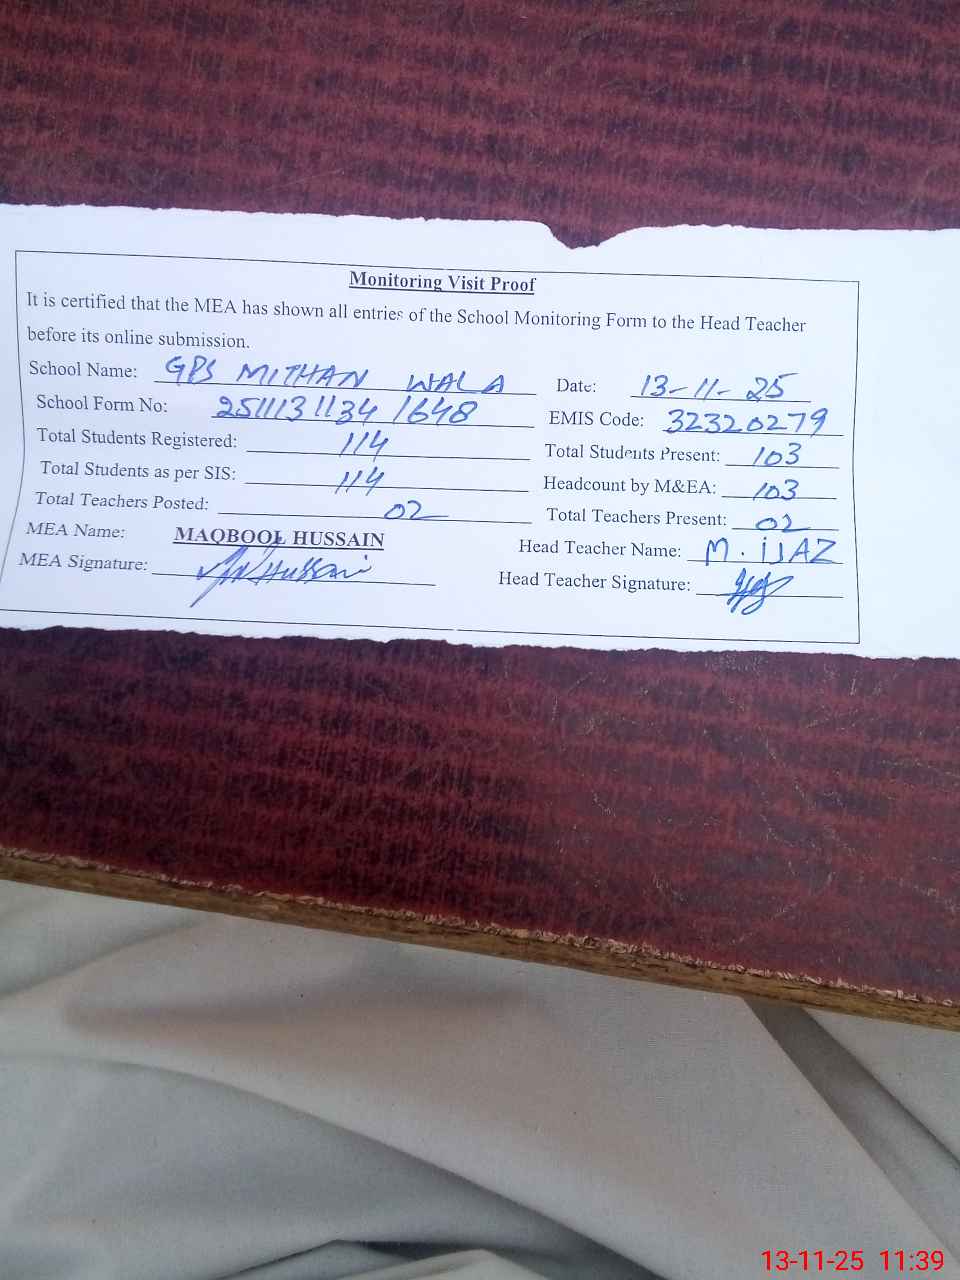 Monitoring Visit Proof
It is certified that the MEA has shown all entries of the School Monitoring Form to the Head Teacher
before its online submission.
School Name: GPS MITHAN WALA Date: 13-11-25
School Form No: 2511131134 1648 EMIS Code: 32320279
Total Students Registered: 114 Total Students Present: 103
Total Students as per SIS: 114 Headcount by M&EA: 103
Total Teachers Posted: 02 Total Teachers Present: 02
MEA Name: MAQBOOL HUSSAIN Head Teacher Name: M. IJAZ
MEA Signature: Head Teacher Signature:
13-11-25 11:39